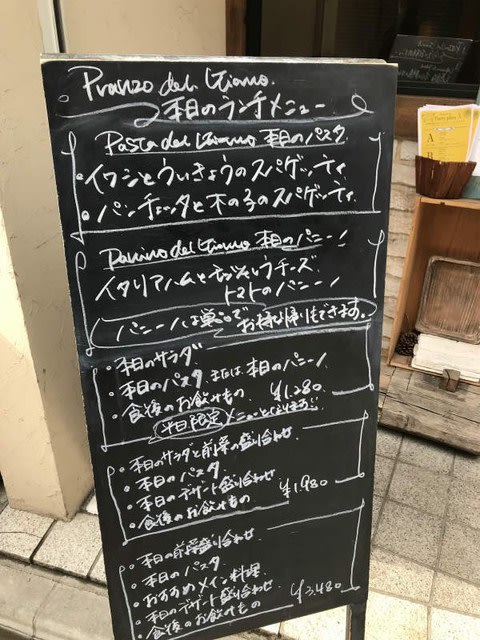 Pranzo del Giorno.
本日のランチメニュー
Pasta del Giorno 本日のパスタ
・イワシとういきょうのスパゲッティ
・パンチェッタと木の子のスパゲッティ
Panino del Giorno 本日のパニーノ
イタリアハムと チーズ
トマトのパニーノ
パニーノは単品でお持ち帰りもできます。
・本日のサラダ
・本日のパスタ または 本日のパニーノ
・食後のお飲みもの ¥1,280
平日限定メニューとなります!!
・本日のサラダと前菜の盛り合わせ
・本日のパスタ
・本日のデザート盛り合わせ
・食後のお飲みもの ¥1,980
・本日の前菜盛り合わせ
・本日のパスタ
・おすすめメイン料理
・本日のデザート盛り合わせ
・食後のお飲みもの ¥3,480
A
B